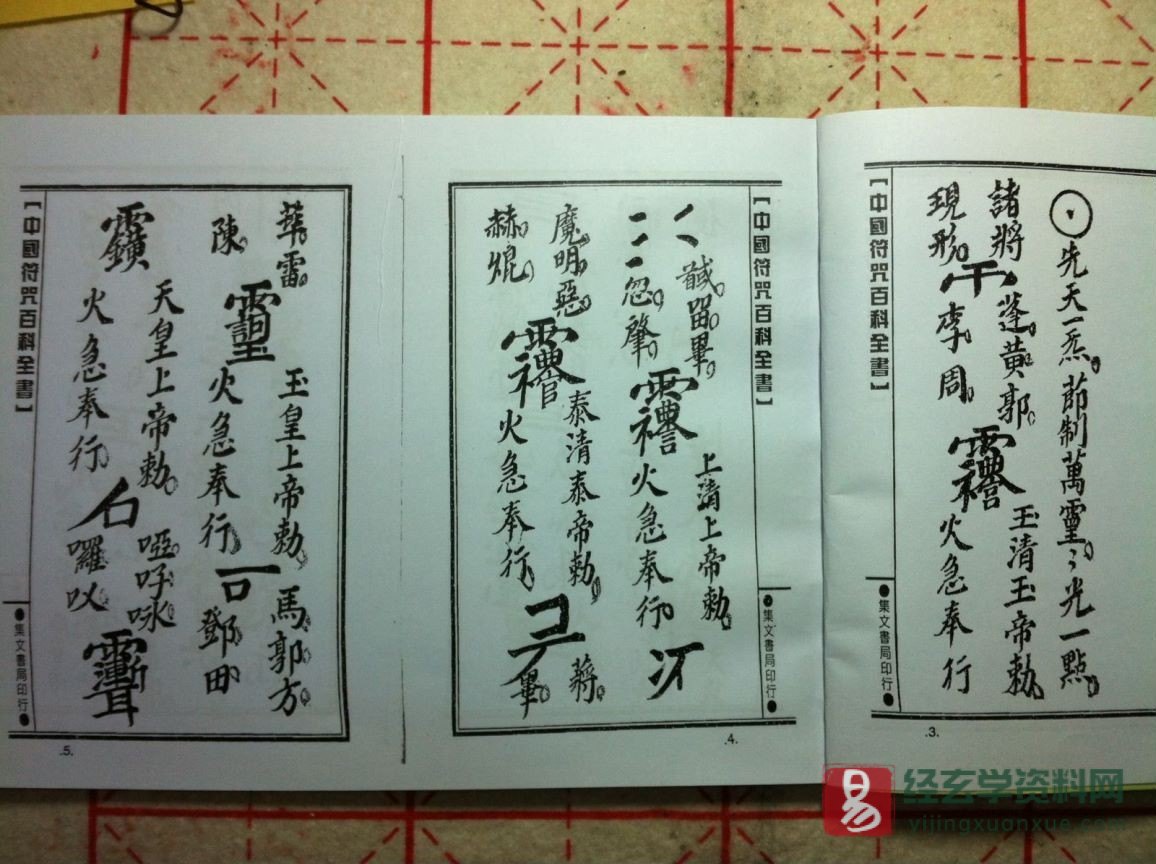 先天一炁。節制萬靈。〻光一點。
諸將
蓬。黃。郭。
玉清玉帝勅。
現形。
李。周。
火急奉行
【中國符咒百科全書】
●集文書局印行●
.3.
【中國符咒百科全書】
●集文書局印行●
畢。
上清上帝勅。
忽。肇。
火急奉行。
魔。明。惡。
泰清泰帝勅。
蔣。
赫。焜。
火急奉行。
畢。
.4.
華。雷。
玉皇上帝勅。
馬。郭。方。
陳。
火急奉行。
鄧。田
天皇上帝勅。
火急奉行。
囉
【中國符咒百科全書】
●集文書局印行●
.5.
易
经玄学资料网
yijingxuanxue.com